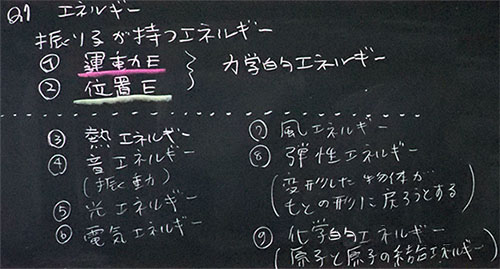 Q1 エネルギー
振り子が持つエネルギー
① 運動E
② 位置E
} 力学的エネルギー
③ 熱エネルギー
④ 音エネルギー
(振動)
⑤ 光エネルギー
⑥ 電気エネルギー
⑦ 風エネルギー
⑧ 弾性エネルギー
(変形した物体が
もとの形に戻ろうとする)
⑨ 化学的エネルギー
(原子と原子の結合エネルギー